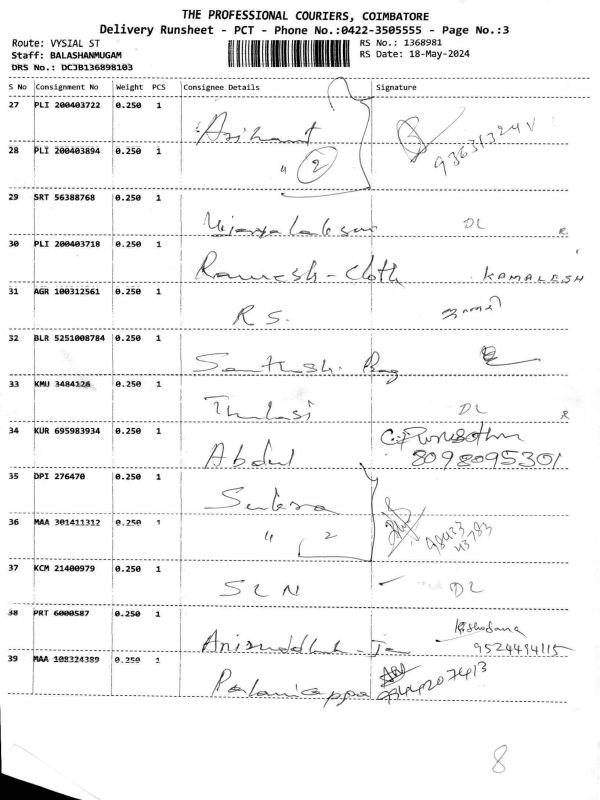 THE PROFESSIONAL COURIERS, COIMBATORE
Delivery Runsheet - PCT - Phone No.:0422-3505555 - Page No.:3
Route: VYSIAL ST
RS No.: 1368981
Staff: BALASHANMUGAM
RS Date: 18-May-2024
DRS No.: DCJB136898103
S No Consignment No Weight PCS Consignee Details Signature
27 PLI 200403722 0.250 1 Arihant
28 PLI 200403894 0.250 1 " 2
29 SRT 56388768 0.250 1 DL R
30 PLI 200403718 0.250 1 Ramesh - Cloth KAMALESH
31 AGR 100312561 0.250 1 R S.
32 BLR 5251008784 0.250 1 Santhosh. Bag
33 KMU 3484126 0.250 1 Thulasi DL R
34 KUR 695983934 0.250 1 Abdul
8098095301
35 DPI 276470 0.250 1
36 MAA 301411312 0.250 1 " 2 98423
43783
37 KCM 21400979 0.250 1 S L N DL
38 PRT 6000587 0.250 1
9524494115
39 MAA 108324389 0.250 1 Palaniappa
8